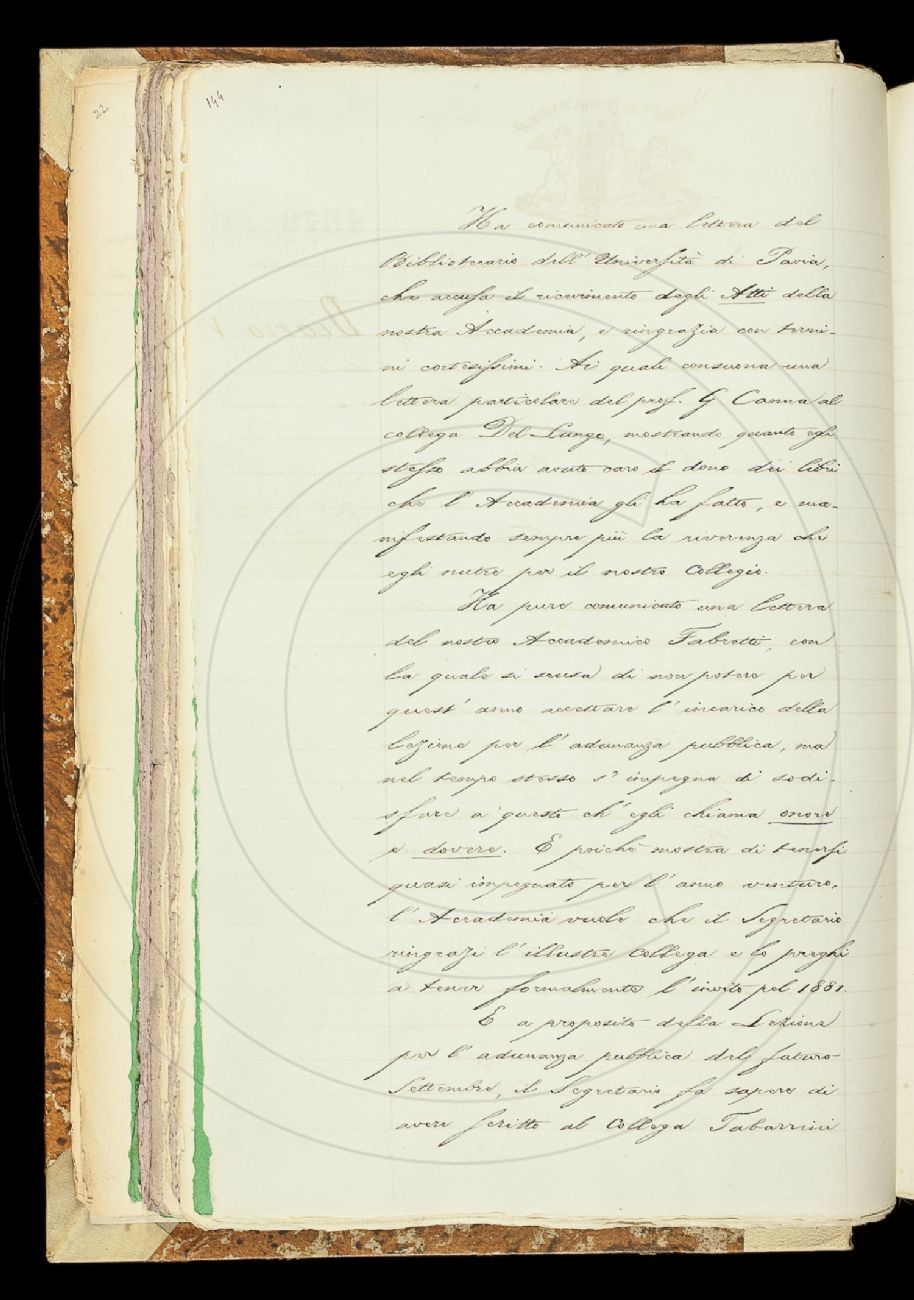 22
144
Ha comunicato una lettera del
Bibliotecario dell' Università di Pavia,
che accusa il ricevimento degli Atti della
nostra Accademia, e ringrazia con termi-
ni cortesissimi. Ai quali consuona una
lettera particolare del prof. G Canna al
collega Del Lungo, mostrando quanto egli
stesso abbia avuto caro il dono dei libri
che l'Accademia gli ha fatto, e ma-
nifestando sempre più la riverenza che
egli nutre per il nostro Collegio.
Ha pure comunicato una lettera
del nostro Accademico Fabretti, con
la quale si scusa di non potere per
quest' anno accettare l' incarico della
lezione per l' adunanza pubblica, ma
nel tempo stesso s' impegna di sodi-
sfare a questo ch' egli chiama onore
e dovere. E poichè mostra di tenersi
quasi impegnato per l' anno venturo,
l' Accademia vuole che il Segretario
ringrazi l' illustre Collega e lo preghi
a tener formalmente l' invito pel 1881.
E a proposito della Lezione
per l' adunanza pubblica del futuro
Settembre, il Segretario fa sapere di
avere scritto al Collega Tabarrini